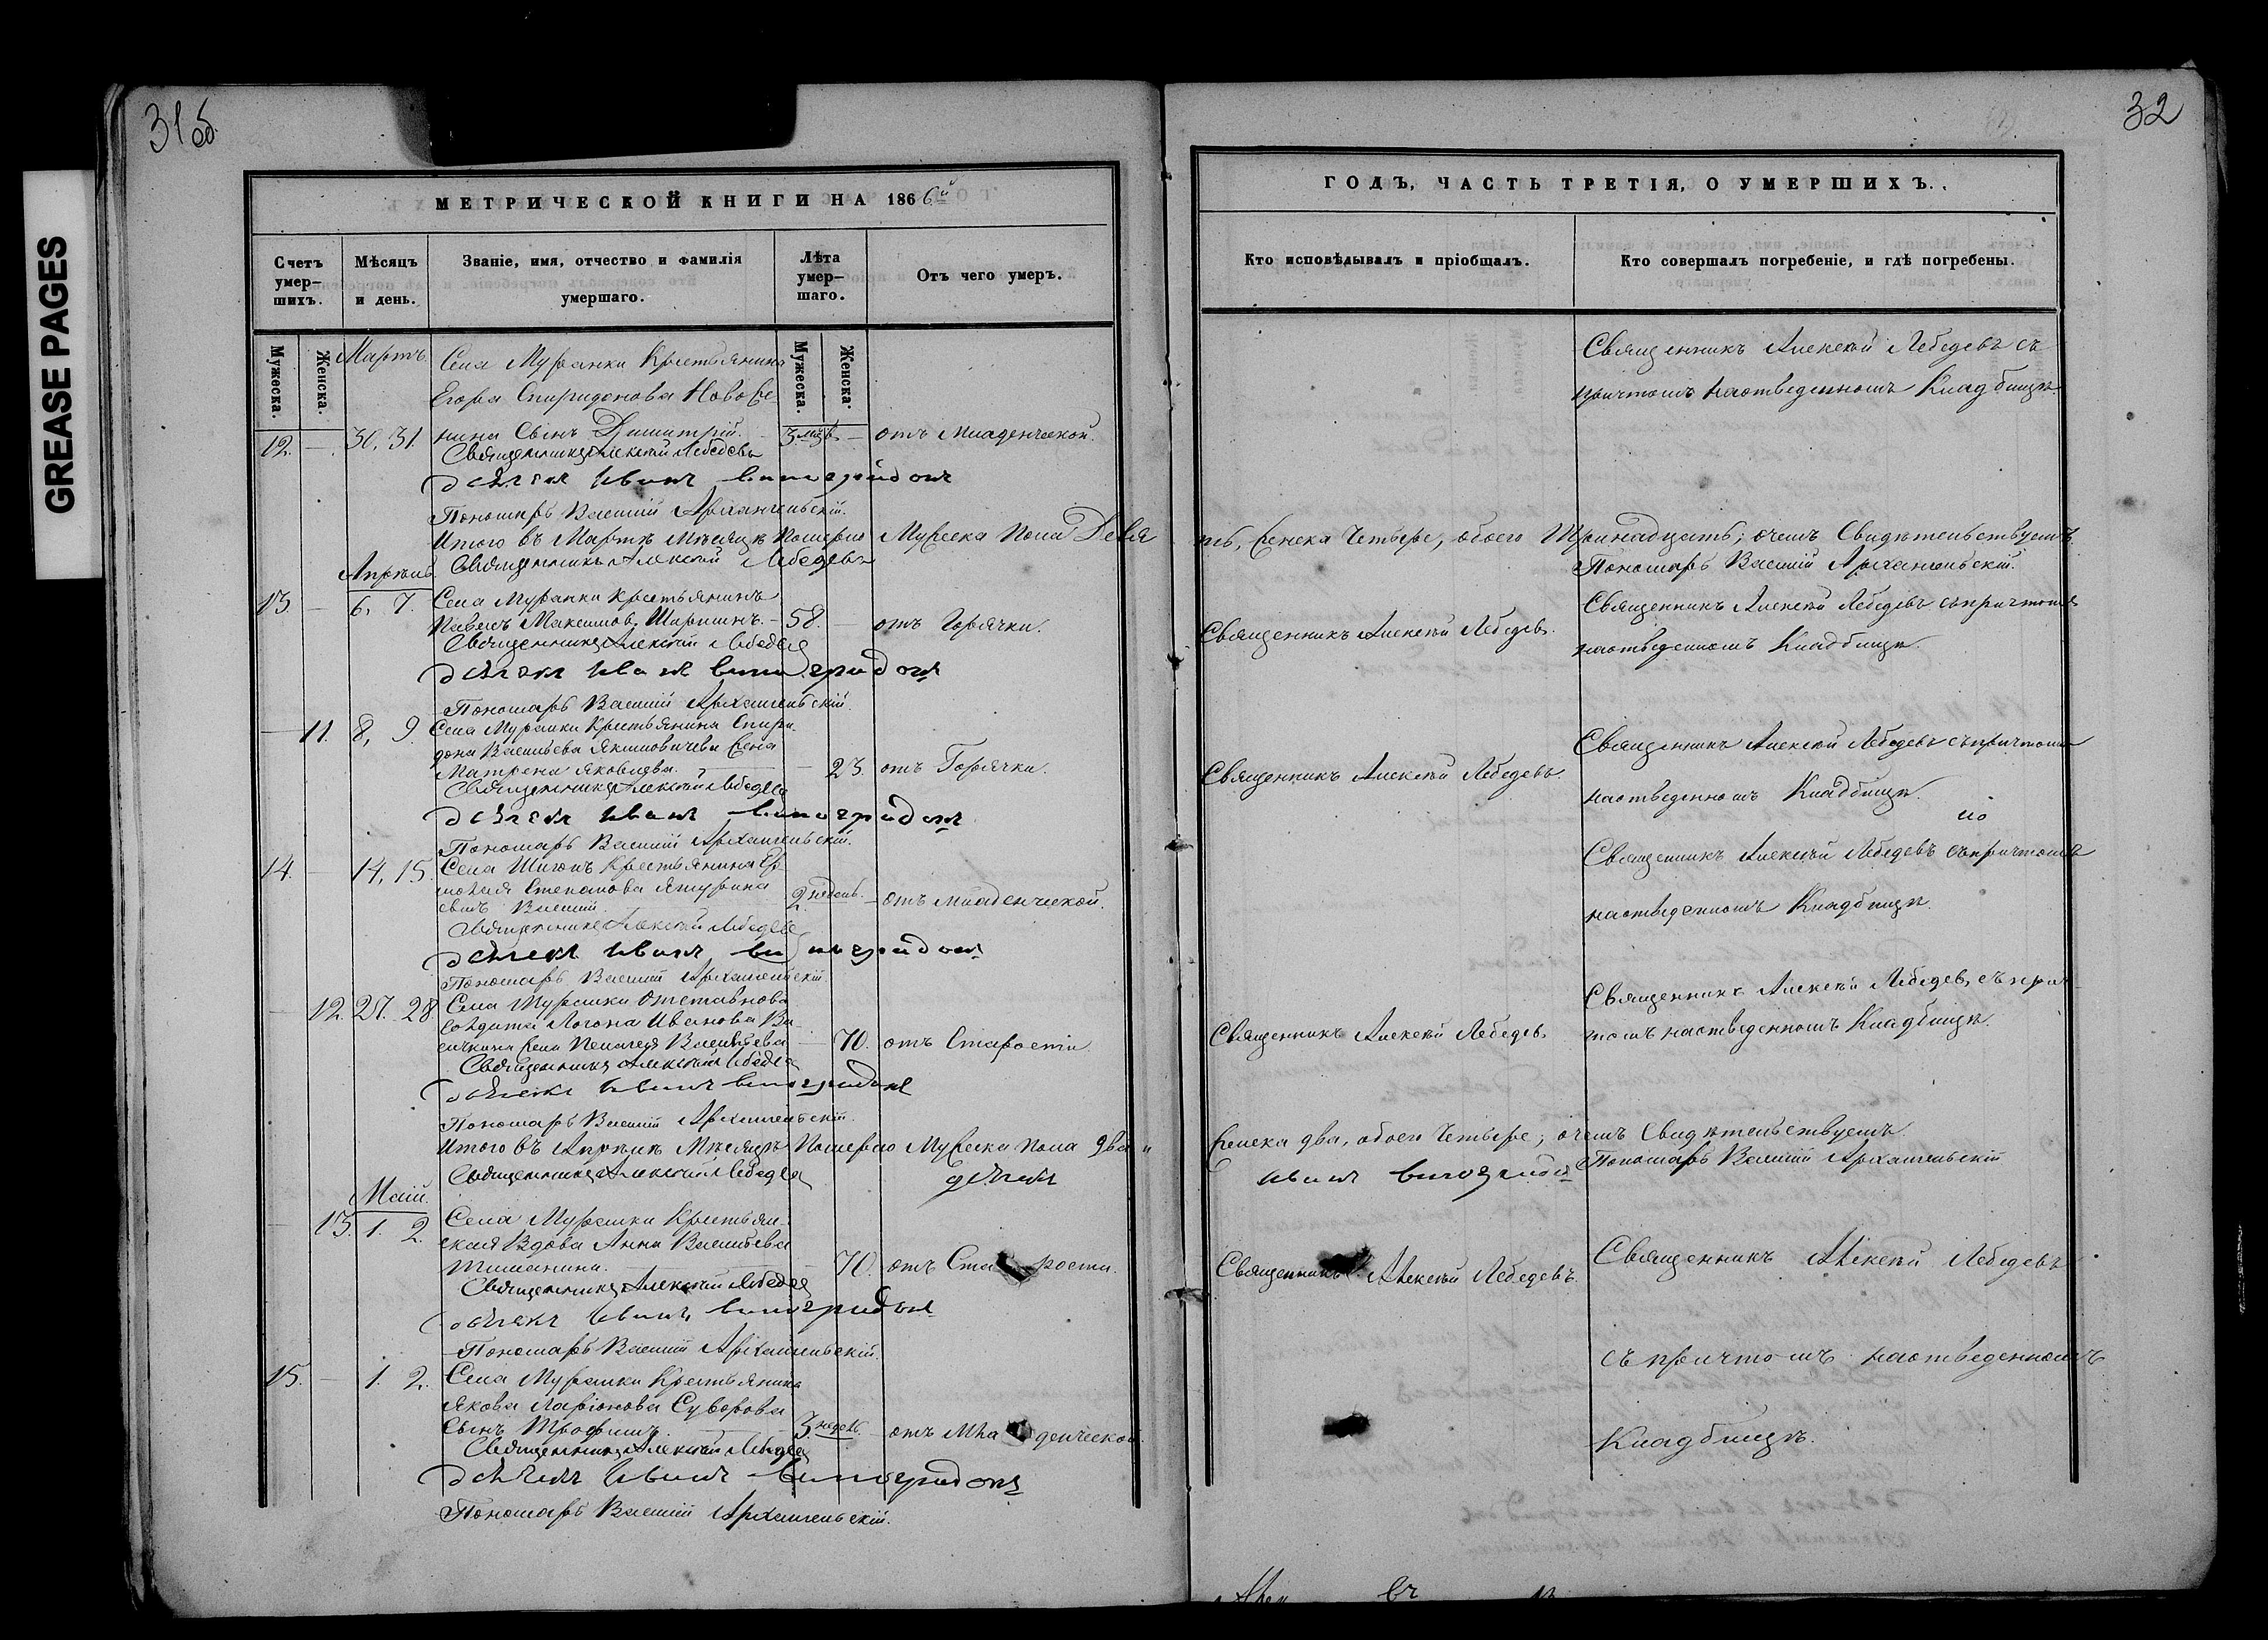 GREASE PAGES
31 об.
МЕТРИЧЕСКОЙ КНИГИ НА 1866й
Счетъ умер-шихъ.
Мѣсяцъ и день.
Званіе, имя, отчество и фамилія умершаго.
Лѣта умер-шаго.
Отъ чего умеръ.
Мужеска.
Женска.
Мужеска.
Женска.
Мартъ.
Села Муранки Крестьянина
Егора Спиридонова Ново
12. — 30, 31. Сынъ Димитрій. 3 — отъ младенческой.
Священникъ Алексѣй Лебедевъ
Дьячекъ Иванъ Виноградовъ
Пономарь Василій Архангельскій.
Итого въ Мартѣ Мѣсяцѣ Померло Мужеска Пола Девя
Священникъ Алексѣй Лебедевъ
Апрѣль
13 — 6, 7. Села Муранки Крестьянинъ
Павелъ Максимовъ — 58. — отъ Горячки.
Священникъ Алексѣй Лебедевъ
Дьячекъ Иванъ Виноградовъ
Пономарь Василій Архангельскій.
— 11. 8, 9. Села Муранки Крестьянина Спири-
дона Васильева Жена
Матрена Яковлева. — 23. отъ Горячки.
Священникъ Алексѣй Лебедевъ
Дьячекъ Иванъ Виноградовъ
Пономарь Василій Архангельскій.
14. — 14, 15. Села Шигонъ Крестьянина Ер-
молая Степанова
сынъ Василій. 2 недель. — отъ младенческой.
Священникъ Алексѣй Лебедевъ
Дьячекъ Иванъ Виноградовъ
Пономарь Василій Архангельскій
— 12. 27. 28 Села Муранки Отставнова
Солдата Логона Иванова
жена Пелагея Васильева — 70. отъ Старости.
Священникъ Алексѣй Лебедевъ
Дьячекъ Иванъ Виноградовъ
Пономарь Василій Архангельскій.
Итого въ Апрѣлѣ Мѣсяцѣ Померло Мужеска пола два „
Священникъ Алексѣй Лебедевъ дьячекъ
Май.
— 13. 1. 2. Села Муранки Крестьян-
ская Вдова Анна Васильева
70. отъ Старости.
Священникъ Алексѣй Лебедевъ
Дьячекъ Иванъ Виноградовъ
Пономарь Василій Архангельскій.
15. — 1. 2. Села Муранки Крестьянина
Якова Ларіонова Суворова
Сынъ Трофимъ. 3. недель — отъ Младенческой.
Священникъ Алексѣй Лебедевъ
Дьячекъ Иванъ Виноградовъ
Пономарь Василій Архангельскій.
32
ГОДЪ, ЧАСТЬ ТРЕТІЯ, О УМЕРШИХЪ.
Кто исповѣдывалъ и пріобщалъ.
Кто совершалъ погребеніе, и гдѣ погребены.
Священникъ Алексѣй Лебедевъ съ
причтомъ наотведенномъ Кладбищѣ.
ть, Женска Четыре, обоего Тринадцать; очемъ Свидѣтельствуемъ
Пономарь Василій Архангельскій.
Священникъ Алексѣй Лебедевъ съпричтомъ
Священникъ Алексѣй Лебедевъ.
наотведенномъ Кладбищѣ.
Священникъ Алексѣй Лебедевъ съпричтомъ
Священникъ Алексѣй Лебедевъ.
наотведенномъ Кладбищѣ.
Священникъ Алексѣй Лебедевъ съпричтомъ
наотведенномъ Кладбищѣ.
Священникъ Алексѣй Лебедевъ, съ прич-
Священникъ Алексѣй Лебедевъ.
томъ наотведенномъ Кладбищѣ.
Женска два, обоего Четыре; очемъ Свидѣтельствуемъ.
Иванъ Виноградовъ Пономарь Василій Архангельскій
Священникъ Алексѣй Лебедевъ.
Священникъ Алексѣй Лебедевъ
съ причтомъ наотведенномъ
Кладбищѣ.